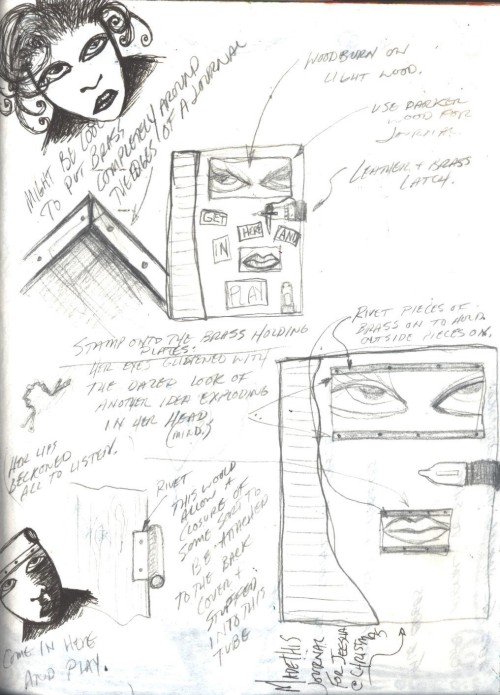 WOODBURN ON
LIGHT WOOD.
USE DARKER
WOOD FOR
JOURNAL.
LEATHER + BRASS
LATCH.
MIGHT BE COOL
TO PUT BRASS
COMPLETELY AROUND
THE EDGES OF A JOURNAL
GET
IN
HERE
AND
PLAY
STAMP ONTO THE BRASS HOLDING
PLATES.
HER EYES GLISTENED WITH
THE DAZED LOOK OF
ANOTHER IDEA EXPLODING
IN HER HEAD
(MIND.)
RIVET PIECES OF
BRASS ON TO HOLD
OUTSIDE PIECES ON.
HER LIPS
BECKONED
ALL TO LISTEN.
RIVET
THIS WOULD
ALLOW A
CLOSURE OF
SOME SORT TO
BE ATTACHED
TO THE BACK
COVER +
STUFFED
INTO THIS
TUBE
COME IN HERE
AND PLAY.
MADE THIS
JOURNAL
FOR TEESHA
@ CHRISTMAS